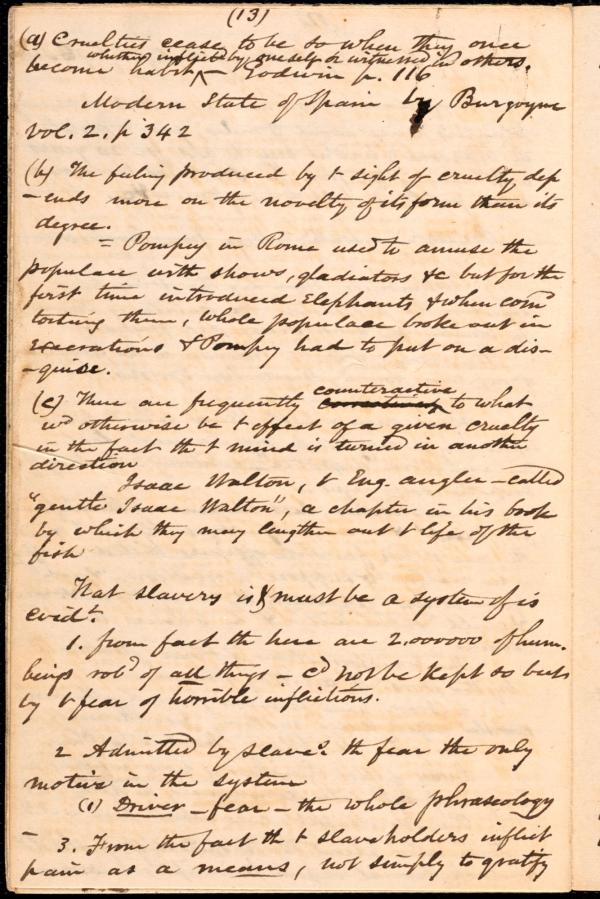 (13)
(a) Cruelties cease to be so when they once
whether inflicted by oneself or witnessed in others.
become habit ^ – Godwin p. 116
Modern State of Spain by Burgoyne
vol. 2. p 342
(b) The feeling produced by t sight of cruelty dep
-ends more on the novelty of its form than its
degree.
= Pompey in Rome used to amuse the
populace with shows, gladiators &c but for the
first time introduced Elephants, & when com
torting them, whole populace broke out in
execrations & Pompey had to put on a dis-
-guise.
counteractive
(c) There are frequently correctives to what
wd otherwise be t effect of a given cruelty
in the fact th t mind is turned in another
direction
Isaac Walton, t Eng. angler – called
"gentle Isaac Walton", a chapter in his book
by which they may lengthen out t life of the
fish
That slavery is & must be a system of is
evidt.
1. from fact th here are 2.000000 of hum.
beings robd of all things – cd not be kept so but
by t fear of horrible inflictions.
2 Admitted by slaves. th fear the only
motive in the system
(1) Driver – fear – the whole phraseology
– 3. From the fact th t slaveholders inflict
pain as a means, not simply to gratify